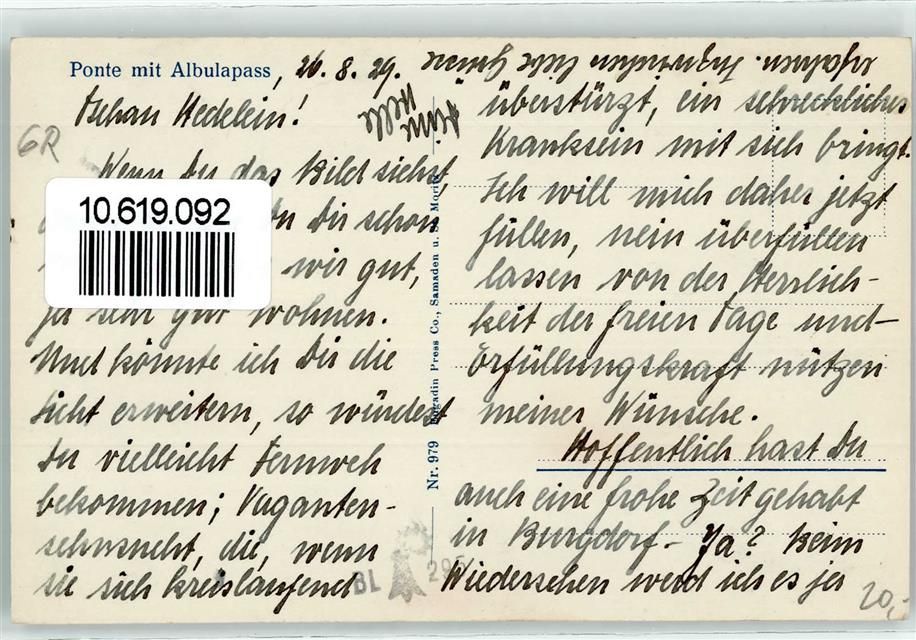 Ponte mit Albulapass, 26.8.29.
Tschau Hedelein!
6R
Wenn Du das Bild siehst,
10.619.092
Dir schon
wir gut,
ja sehr gut wohnen.
Und könnte ich Dir die
Sicht erweitern, so würdest
Du vielleicht Fernweh
bekommen; Vaganten-
sehnsucht, die, wenn
sie sich kreislaufend
BL 295
Nr. 979 Engadin Press Co., Samaden u. St. Moritz
überstürzt, ein schreckliches
Kranksein mit sich bringt.
Ich will mich daher jetzt
füllen, nein überfüllen
lassen von der Herrlich-
keit der freien Tage und
Erfüllungskraft nützen
meiner Wünsche.
Hoffentlich hast Du
auch eine frohe Zeit gehabt
in Burgdorf - Ja? Beim
Wiedersehen werd ich es ja
erfahren.
20,-